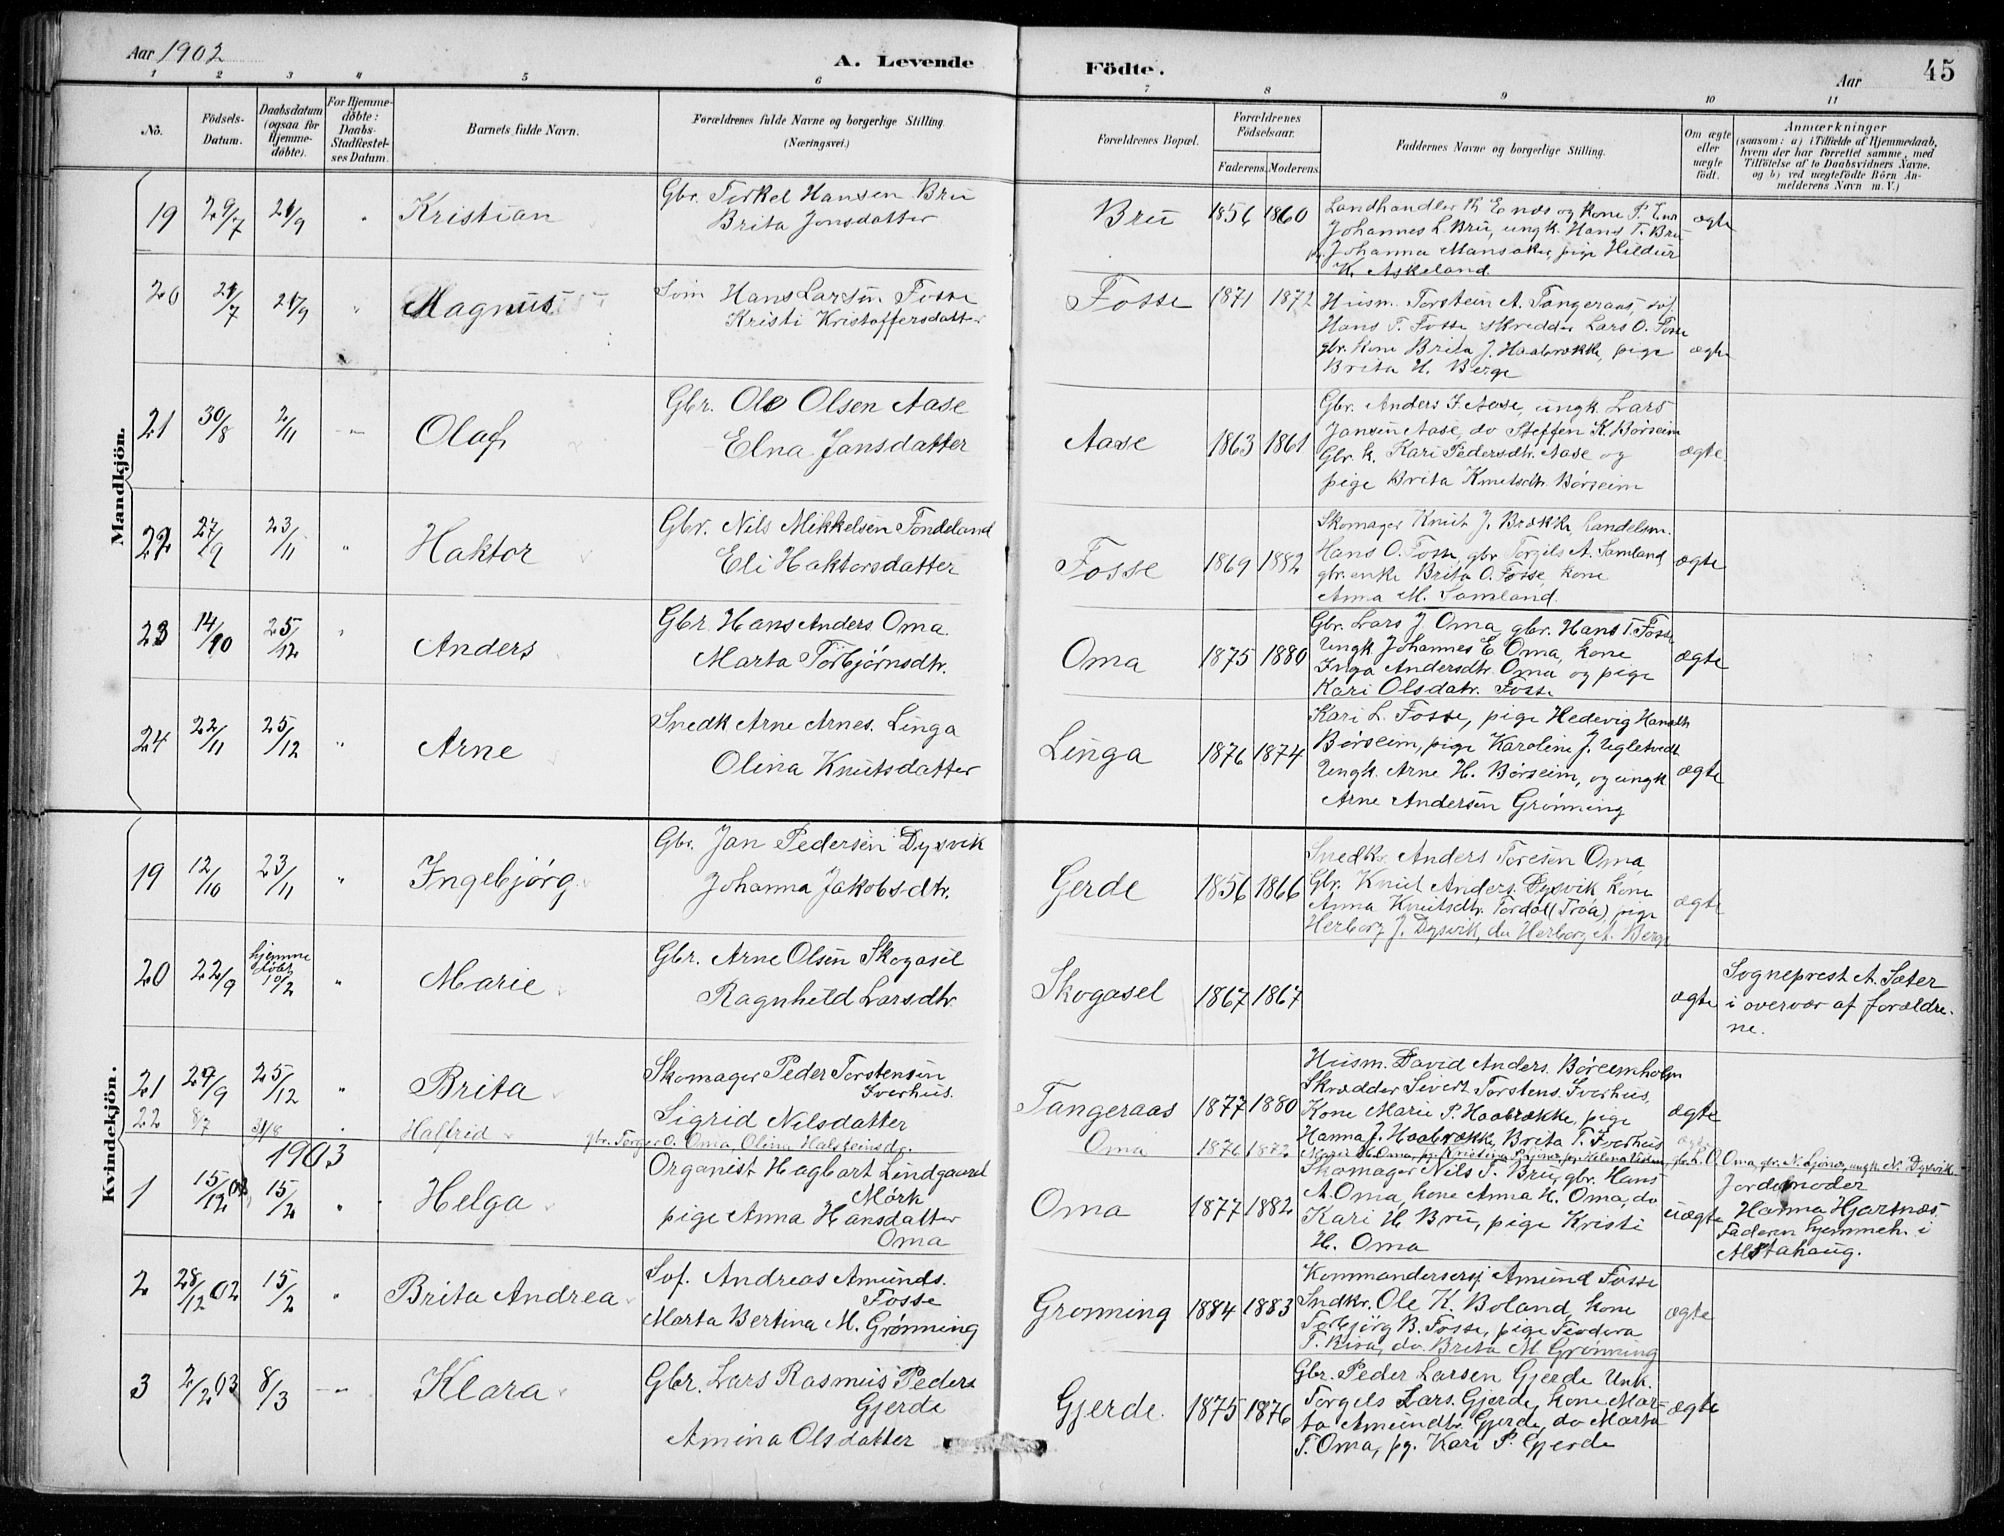 Aar 1902
A. Levende Födte.
Aar 45
1 2 3 4 5 6 7 8 9 10 11
No.
Födsels-Datum.
Daabsdatum (ogsaa for Hjemme-döbte).
For Hjemme-döbte: Daabs-Stadfæstel-ses Datum.
Barnets fulde Navn.
Forældrenes fulde Navne og borgerlige Stilling.
(Næringsvei.)
Forældrenes Bopæl.
Forældrenes Födselsaar.
Faderens. Moderens.
Faddernes Navne og borgerlige Stilling.
Om ægte eller uægte födt.
Anmærkninger
(saasom: a) i Tilfælde af Hjemmedaab,
hvem der har forrettet samme, med
Tilföielse af to Daabsvidners Navne.
og b) ved uægtefödte Börn An-
melderens Navn m. V.)
Mandkjön.
19 29/7 21/9 " Kristian
Gbr. Torkel Hansen Bru
Brita Jonsdatter
Bru 1856 1860
Landhandler Th Enæs og kone P. Enæs
Johannes L. Bru, ungk. Hans T. Bru
Johanna Mansaker, pige Hildur
K. Askeland
ægte
20 21/7 21/9 " Magnus
Hans Larsen Fosse
Kristi Kristoffersdatter
Fosse 1871 1872
Husm. Torstein A. Tangeraas, sof
Hans T. Fosse skredder Lars O. Fosse
gbr. kone Brita J. Haabrække, pige
Brita H. Berge
ægte
21 30/8 2/11 Olaf
Gbr. Ole Olsen Aase
Elna Jansdatter
Aase 1863 1861
Gbr. Anders J. Aase, ungk. Lars
Jansen Aase, do Steffen K. Børseim
Gbr. k. Kari Pedersdtr. Aase og
pige Brita Knutsdtr. Børseim
ægte
22 27/9 23/11 " Haktor
Gbr. Nils Mikkelsen Tondeland
Eli Haktorsdatter
Fosse 1869 1882
Skomager Knut J. Brække, Handelsm.
Hans O. Fosse, gbr Torgils A. Samland,
gbr. enke Brita O. Fosse, kone
Anna M. Samland.
ægte
23 14/10 25/12 " Anders
Gbr. Hans Anders. Oma.
Marta Torbjørnsdtr.
Oma 1875 1880
Gbr. Lars J Oma, gbr. Hans T. Fosse
Ungk Johannes E. Oma, kone
Inga Andersdtr. Oma og pige
Kari Olsdatr. Fosse
ægte
24 22/11 25/12 " Arne
Snedk Arne Arnes. Linga
Olina Knutsdatter
Linga 1876 1874
Kari L. Fosse, pige Hedevig Hansdtr
Børseim, pige Karoline J. Ugletvedt
Ungk. Arne H. Børseim, og ungk
Arne Andersen Grønning
ægte
Kvindekjön.
19 12/10 23/11 " Ingebjørg
Gbr. Jan Pedersen Dysvik
Johanna Jakobsdtr.
Gerde 1856 1866
Snedkr. Anders Toresen Oma,
Gbr. Knut Anders. Dysvik kone
Anna Knutsdtr. Tordal (Trøa), pige
Herborg J. Dysvik, do Herborg A. Berge
ægte
20 22/9 hjemme døbt 10/2 " Marie
Gbr. Arne Olsen Skogasel
Ragnheld Larsdtr.
Skogasel 1867 1867
ægte
Sogneprest A. Sæter
i overvær af forældre-
ne.
21 29/9 25/12 " Brita
Skomager Peder Torstensen
Iverhus.
Sigrid Nilsdatter
Tangeraas 1877 1880
Husm. David Anders. Børseimholm
Skrædder Sivert Torstens. Iverhus,
Kone Marie P. Haabrække, pige
Hanna J. Haabrække, Brita T. Iverhus
ægte
22 8/7 31/8 " Halfrid
gbr. Torger O. Oma, Olina Halsteinsdr.
Oma 1876 1872
ægte
1903
1 15/12 02 15/2 " Helga
Organist Hagbart Lindgaard
Mørk
pige Anna Hansdatter
Oma
Oma 1877 1882
Skomager Nils T. Bru, gbr. Hans
A. Oma, kone Anna H. Oma, do
Kari H Bru, pige Kristi
H. Oma
uægte
Jordemoder
Hanna Hjartnæs.
Faderen hjemmeh. i
Alstahaug.
2 28/12 02 15/2 " Brita Andrea
Sof. Andreas Amunds.
Fosse
Marta Bertina M. Grønning
Grønning 1884 1883
Kommandersersj Amund Fosse
Sndkr. Ole K. Boland, kone
Torbjørg B. Fosse, pige Teodora
T. Risa, do. Brita M Grønning
ægte
3 2/2 03 8/3 Klara
Gbr. Lars Rasmus Peders
Gjerde
Amina Olsdatter
Gjerde. 1875 1876
Gbr. Peder Larsen Gjerde Unk.
Torgels Lars. Gjerde, kone Mar-
ta Amundtr. Gjerde, do Marta
T. Oma, pg. Kari P. Gjerde
ægte